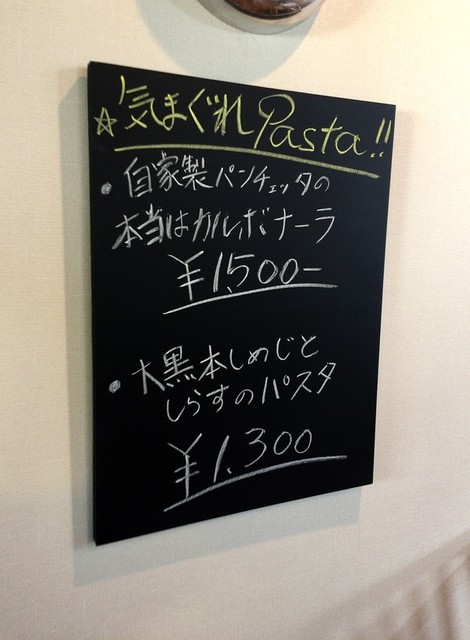 ☆気まぐれPasta!!
・自家製パンチェッタの
本当はカルボナーラ
¥1,500-
・大黒本しめじと
しらすのパスタ
¥1,300